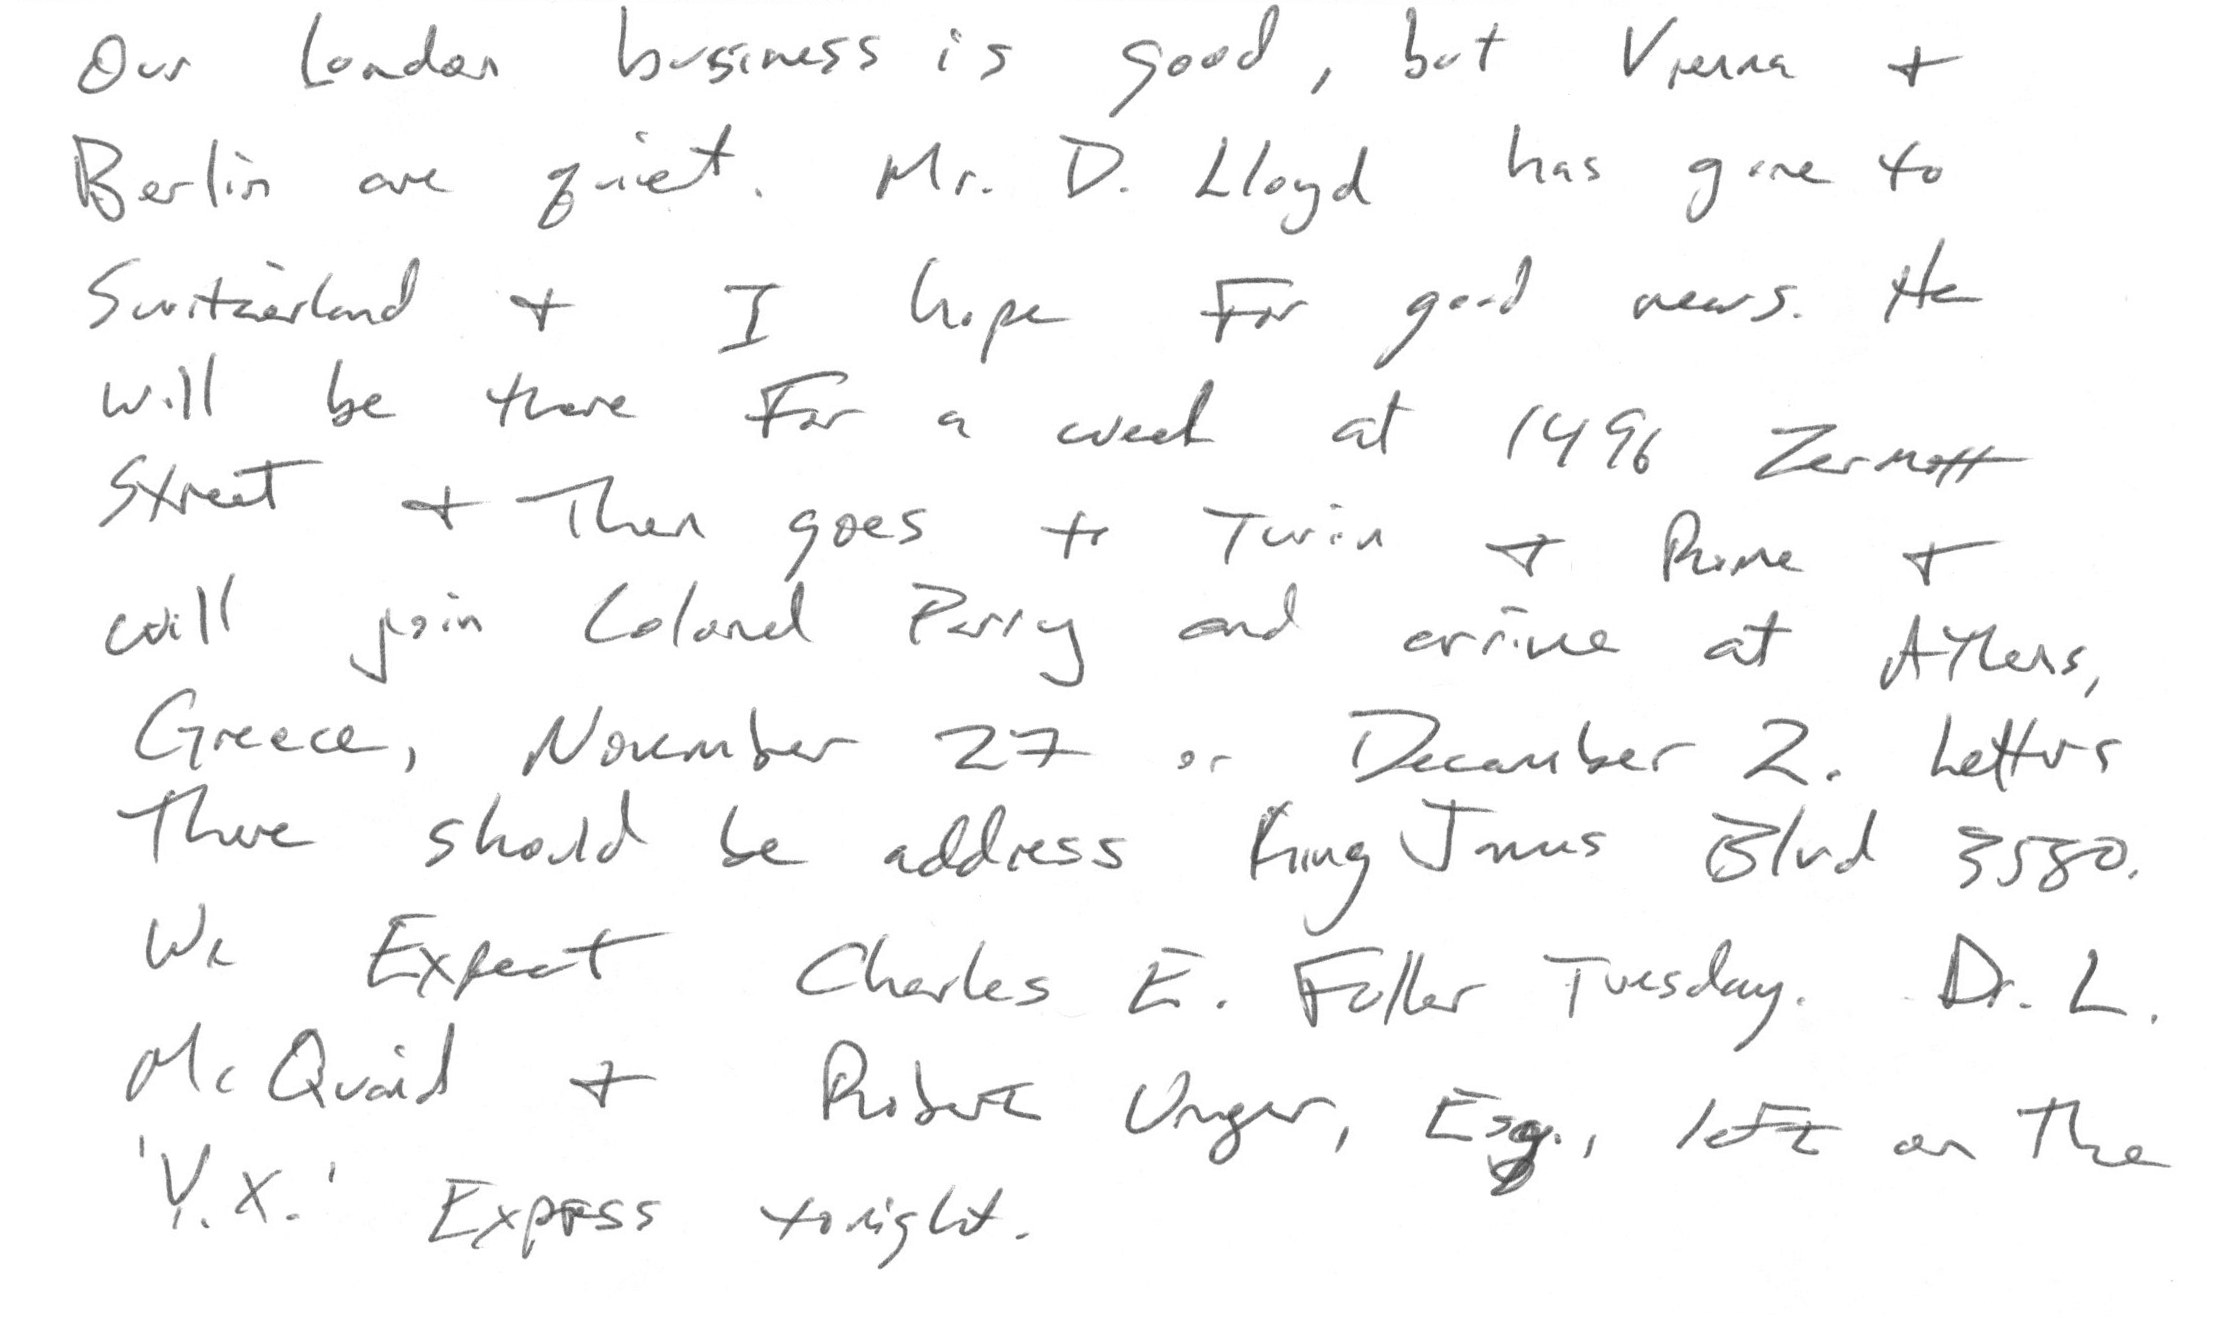 Our London business is good, but Vienna +
Berlin are quiet. Mr. D. Lloyd has gone to
Switzerland + I hope For good news. He
will be there For a week at 1496 Zermott
Street + Then goes to Turin + Rome +
will join Colonel Parry and arrive at Athens,
Greece, November 27 or December 2. Letters
There should be address King James Blvd 3580.
We Expect Charles E. Fuller Tuesday. Dr. L.
McQuaid + Robert Unger, Esq., left on The
'V.X.' Express tonight.